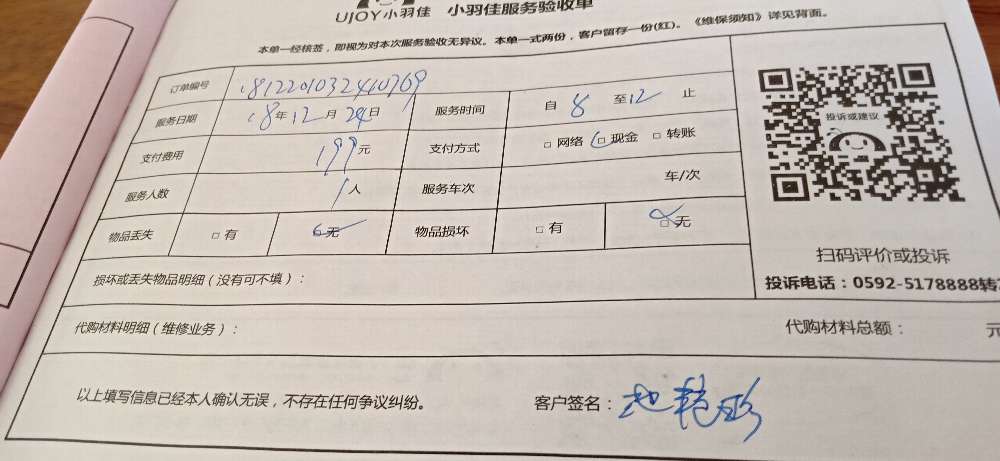 UJOY小羽佳 小羽佳服务验收单
本单一经核签，即视为对本次服务验收无异议。本单一式两份，客户留存一份(红)。《维保须知》详见背面。
订单编号
服务日期 18年12月24日 服务时间 自 8 至12 止
支付费用 199元 支付方式 □ 网络 □ 现金 □ 转账
服务人数 1人 服务车次 车/次
物品丢失 □ 有 □ 无 物品损坏 □ 有 □ 无
投诉或建议
扫码评价或投诉
损坏或丢失物品明细（没有可不填）：
投诉电话：0592-5178888转
代购材料明细（维修业务）： 代购材料总额： 元
以上填写信息已经本人确认无误，不存在任何争议纠纷。 客户签名：